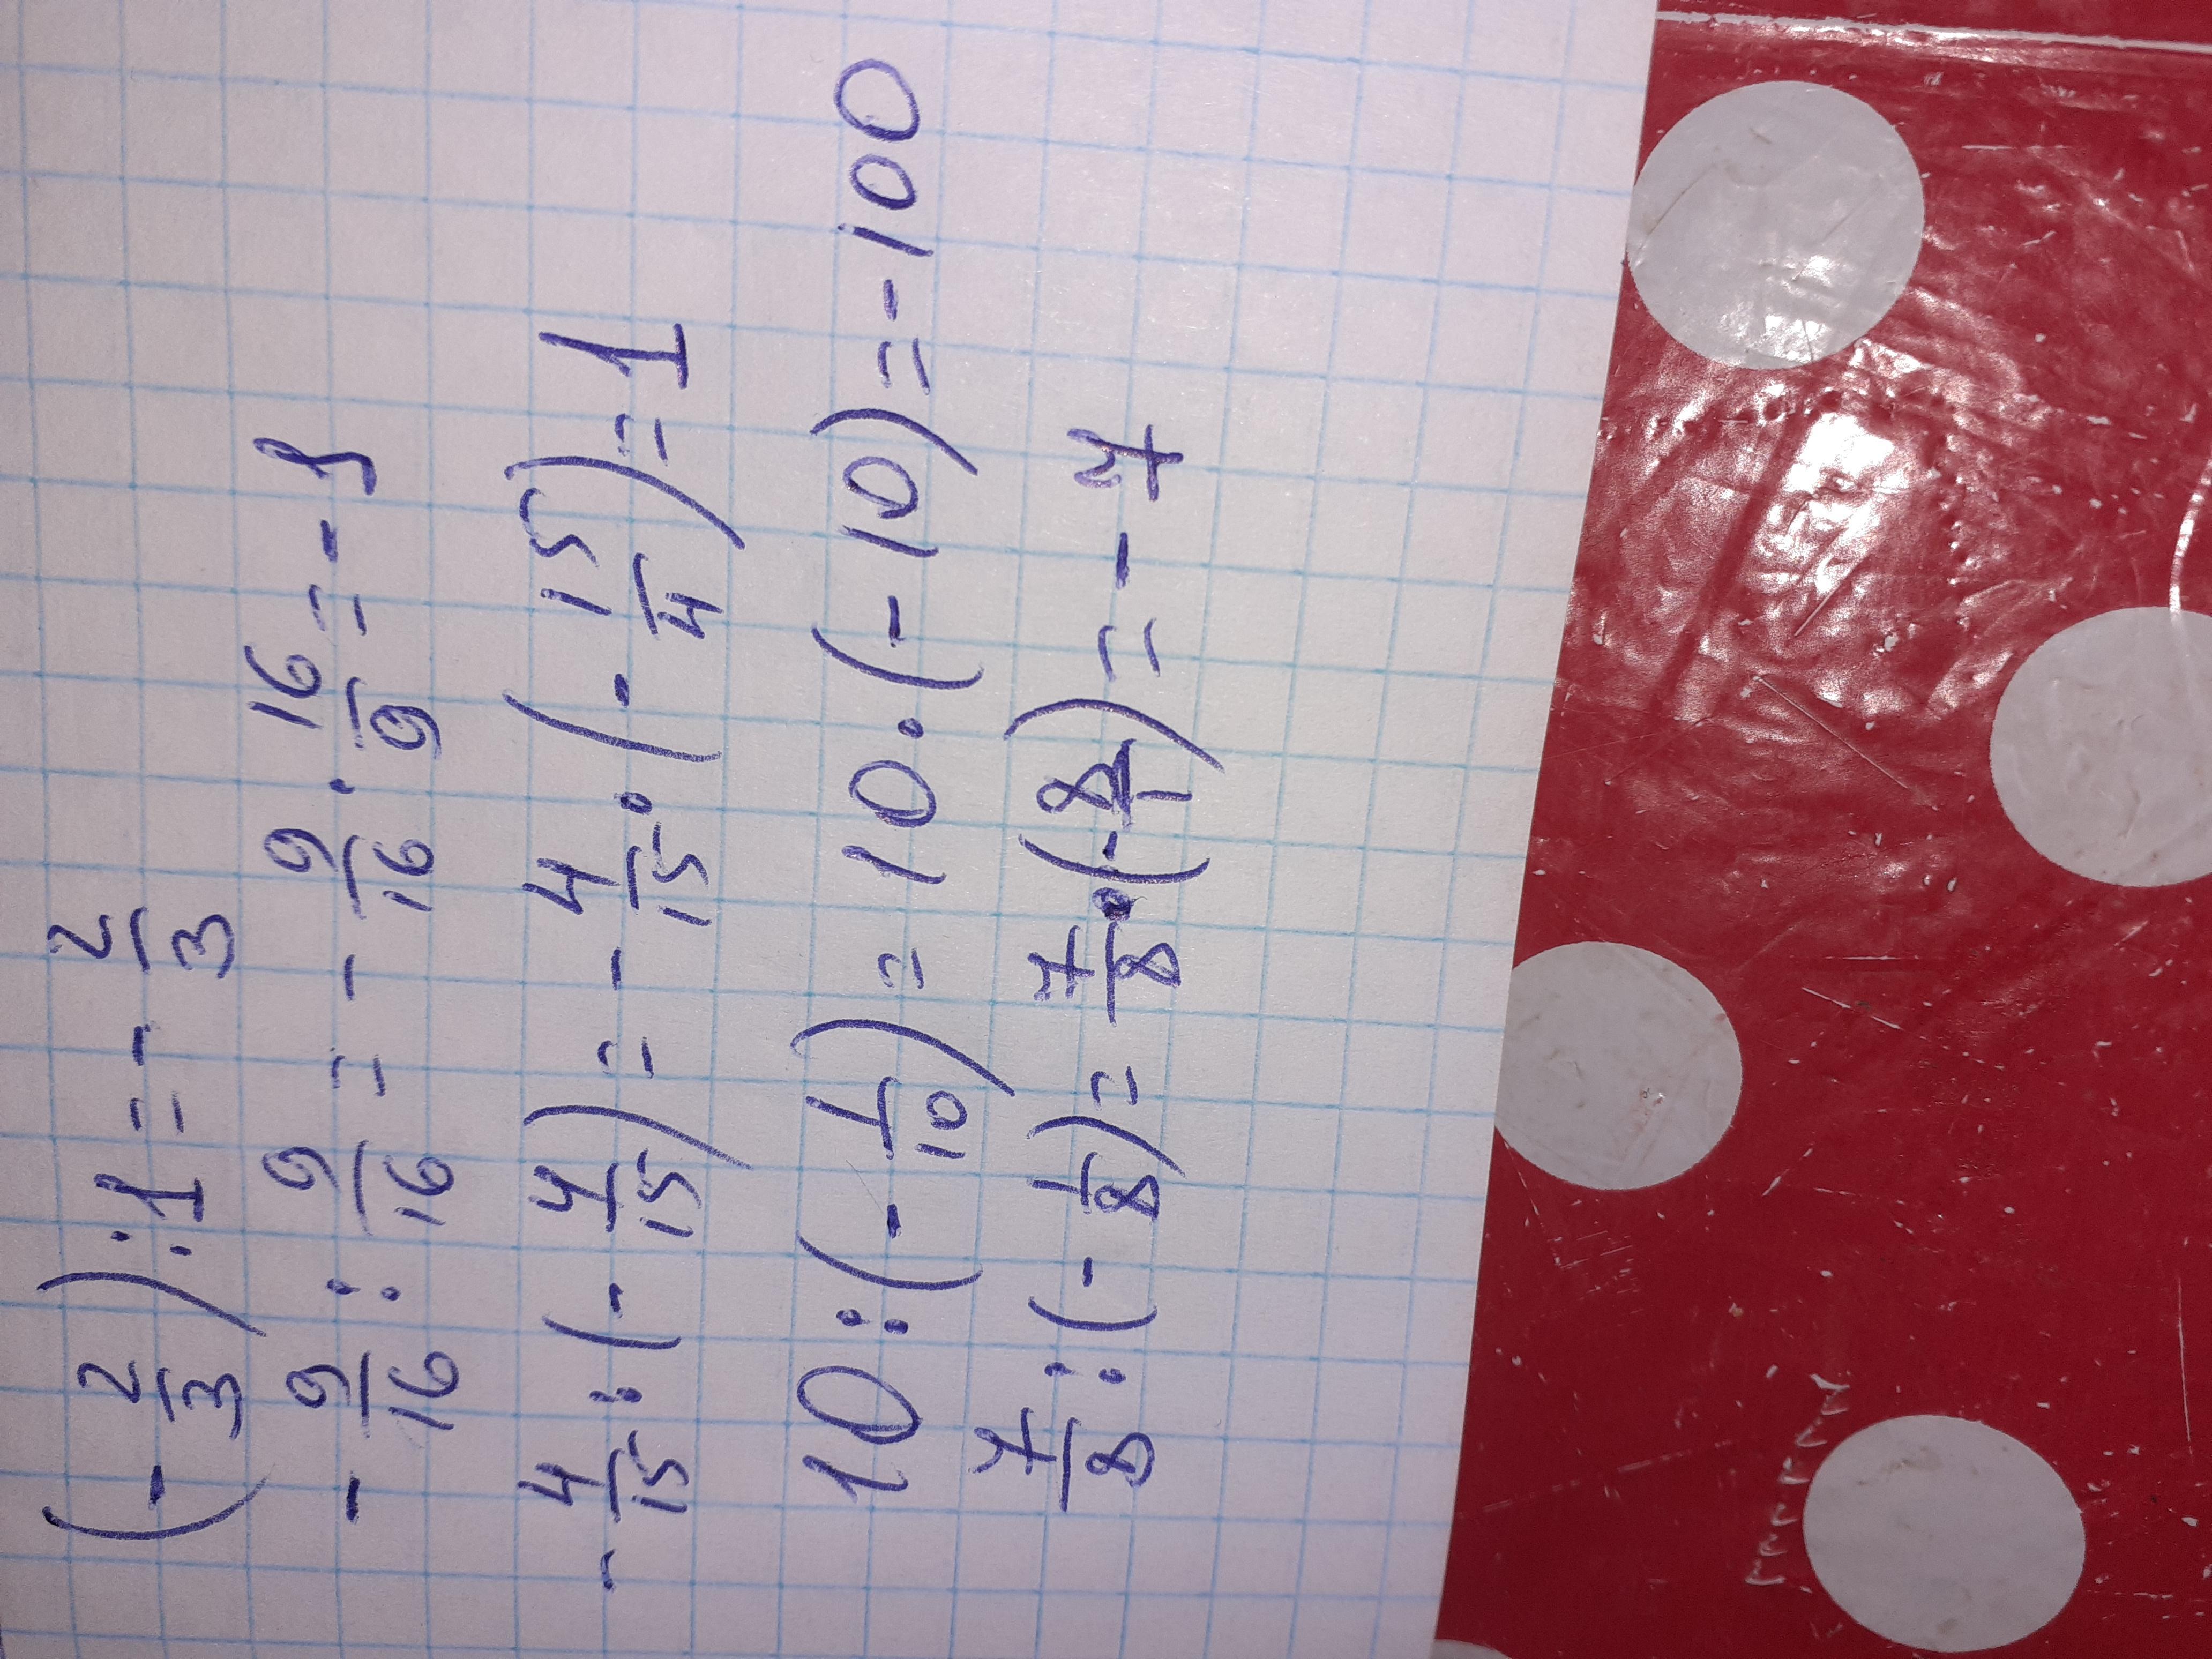 (-2/3):1=-2/3
-9/16:9/16=-9/16·16/9=-1
-4/15:(-4/15)=-4/15·(-15/4)=1
10:(-1/10)=10·(-10)=-100
7/8:(-1/8)=7/8·(-8/1)=-7